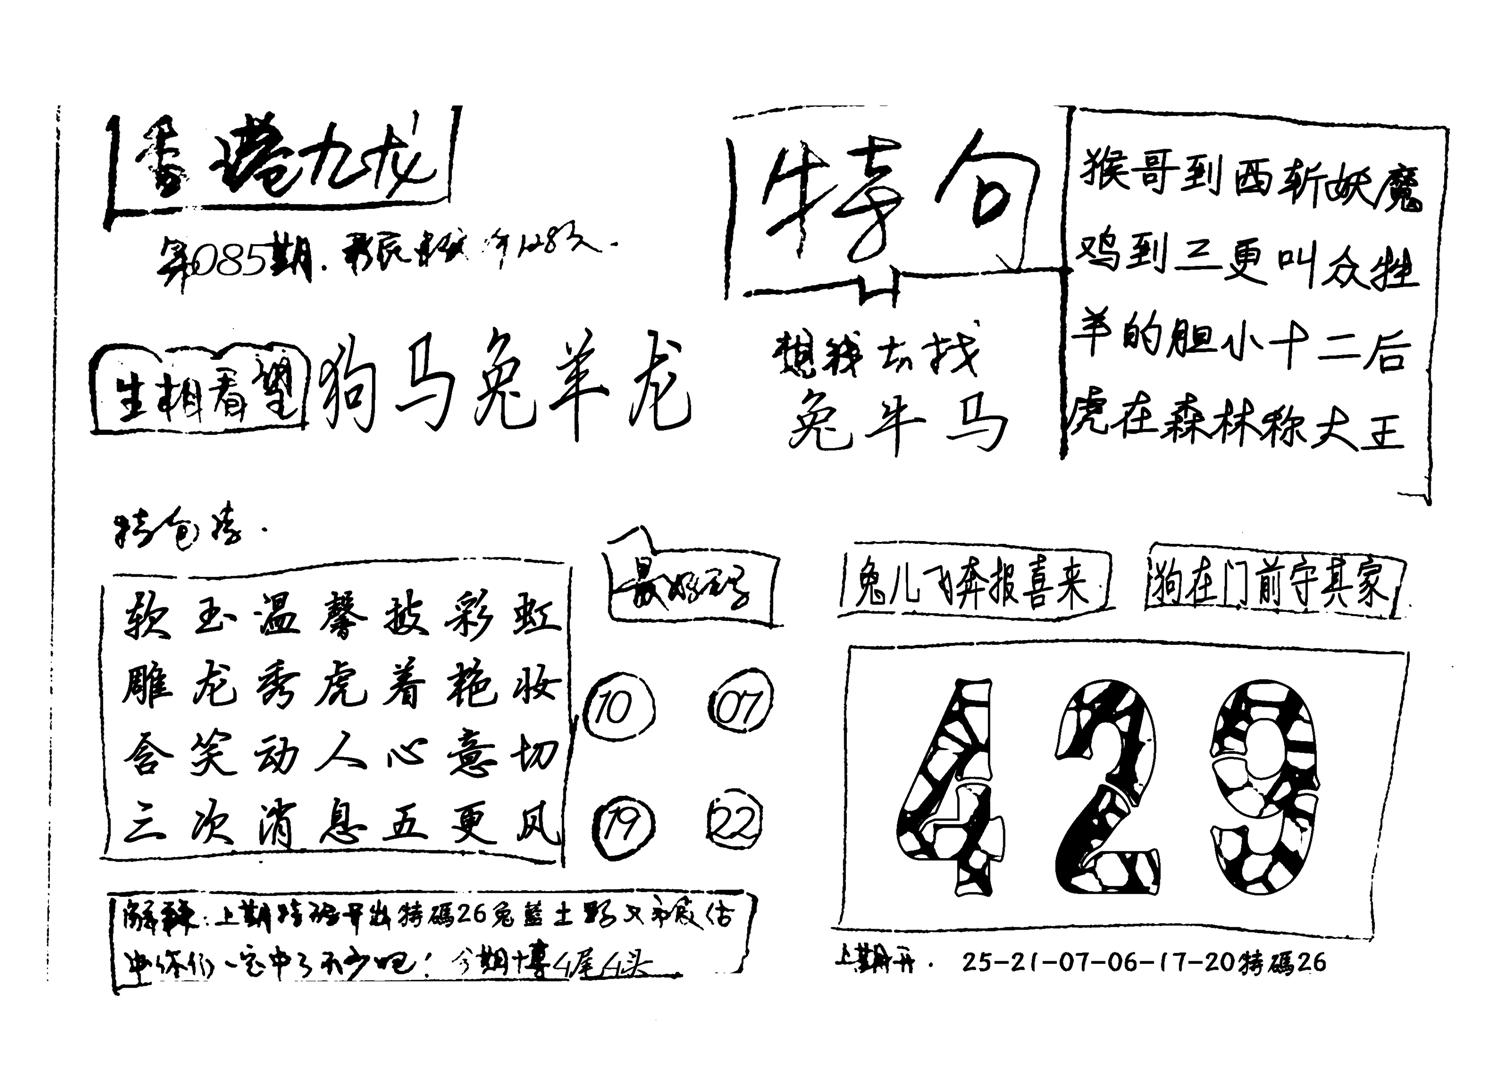 香港九龙
第085期.
生相看望
狗马兔羊龙
特句
想钱去找
兔牛马
猴哥到西斩妖魔
鸡到三更叫众牲
羊的胆小十二后
虎在森林称大王
软玉温馨披彩虹
雕龙秀虎着艳妆
含笑动人心意切
三次消息五更风
最好码
10 07
19 22
兔儿飞奔报喜来
狗在门前守其家
429
解释:上期特码开出特碼26兔藍土
你们一定中了不少吧!今期博4尾4头
上期开. 25-21-07-06-17-20特碼26